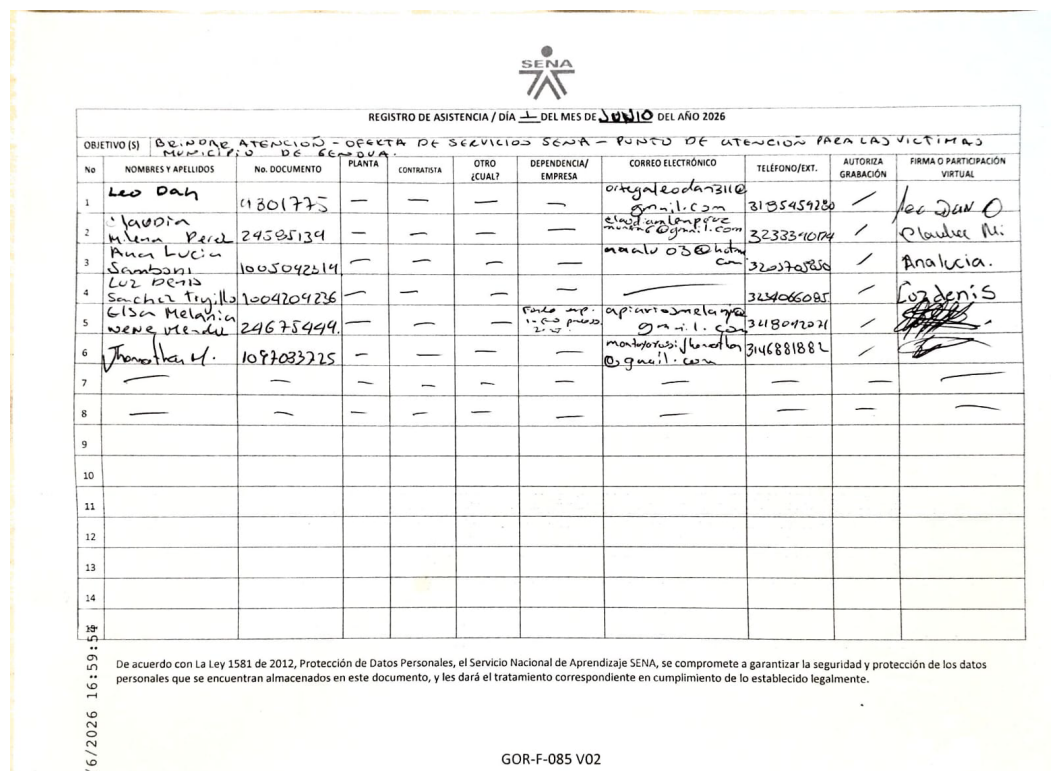 SENA
REGISTRO DE ASISTENCIA / DÍA 1 DEL MES DE JUNIO DEL AÑO 2026
OBJETIVO (S) BRINDAR ATENCIÓN - OFERTA DE SERVICIOS SENA - PUNTO DE ATENCIÓN PARA LAS VICTIMAS
MUNICIPIO DE GENOVA.
No NOMBRES Y APELLIDOS No. DOCUMENTO PLANTA CONTRATISTA OTRO ¿CUAL? DEPENDENCIA/ EMPRESA CORREO ELECTRÓNICO TELÉFONO/EXT. AUTORIZA GRABACIÓN FIRMA O PARTICIPACIÓN VIRTUAL
1 Leo Dan 41301775 — — — — ortegaleodan311@ gmail.com 3185459280 / Leo Dan O
2 Claudia Milena Perez 24585139 — — — — @gmail.com 3233390174 / Claudia Mi
3 Ana Lucia Samboni 1005092319 — — — — 03@hotm com 3203705850 / Analucia.
4 Luz Denis Sanchez Trujillo 1004209236 — — — — — 3234066085 / Luzdenis
5 Elsa Melania 24675499. — — — apiariosmelania@ gmail.com 3218042071 /
6 Jhonathan M. 1097033225 — — — — @gmail.com 3146881882 /
7 — — — — — — — — — —
8 — — — — — — — — — —
9
10
11
12
13
14
15
De acuerdo con La Ley 1581 de 2012, Protección de Datos Personales, el Servicio Nacional de Aprendizaje SENA, se compromete a garantizar la seguridad y protección de los datos
personales que se encuentran almacenados en este documento, y les dará el tratamiento correspondiente en cumplimiento de lo establecido legalmente.
6/2026 16:59:5
GOR-F-085 V02